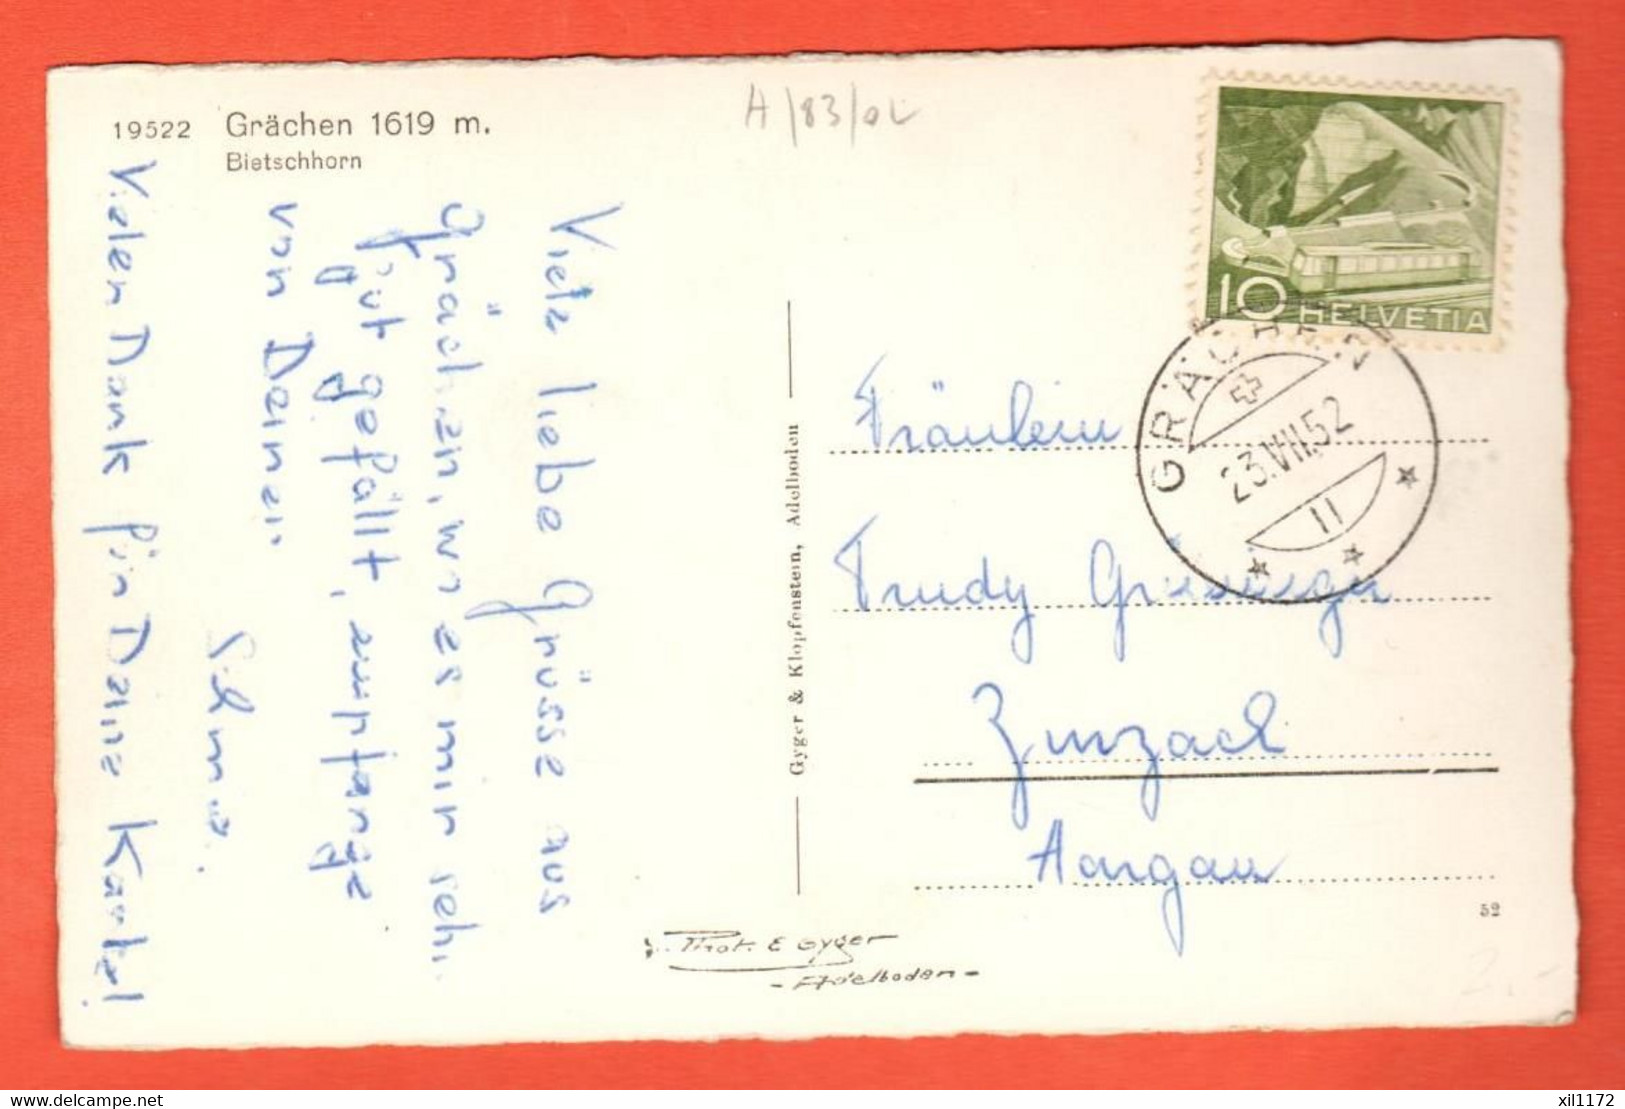 19522 Grächen 1619 m.
Bietschhorn
A/83/02
Viele liebe Grüsse aus
Grächen, wo es mir sehr
gut gefällt, empfange
von Deiner
Selma.
Vielen Dank für Deine Karte!
Gyger & Klopfenstein, Adelboden
Phot. E Gyger
- Adelboden -
10 HELVETIA
GRÄCHEN
23.VII.52
11
Fräulein
Trudy
Zurzach
Aargau
52
delcampe.net
xil1172